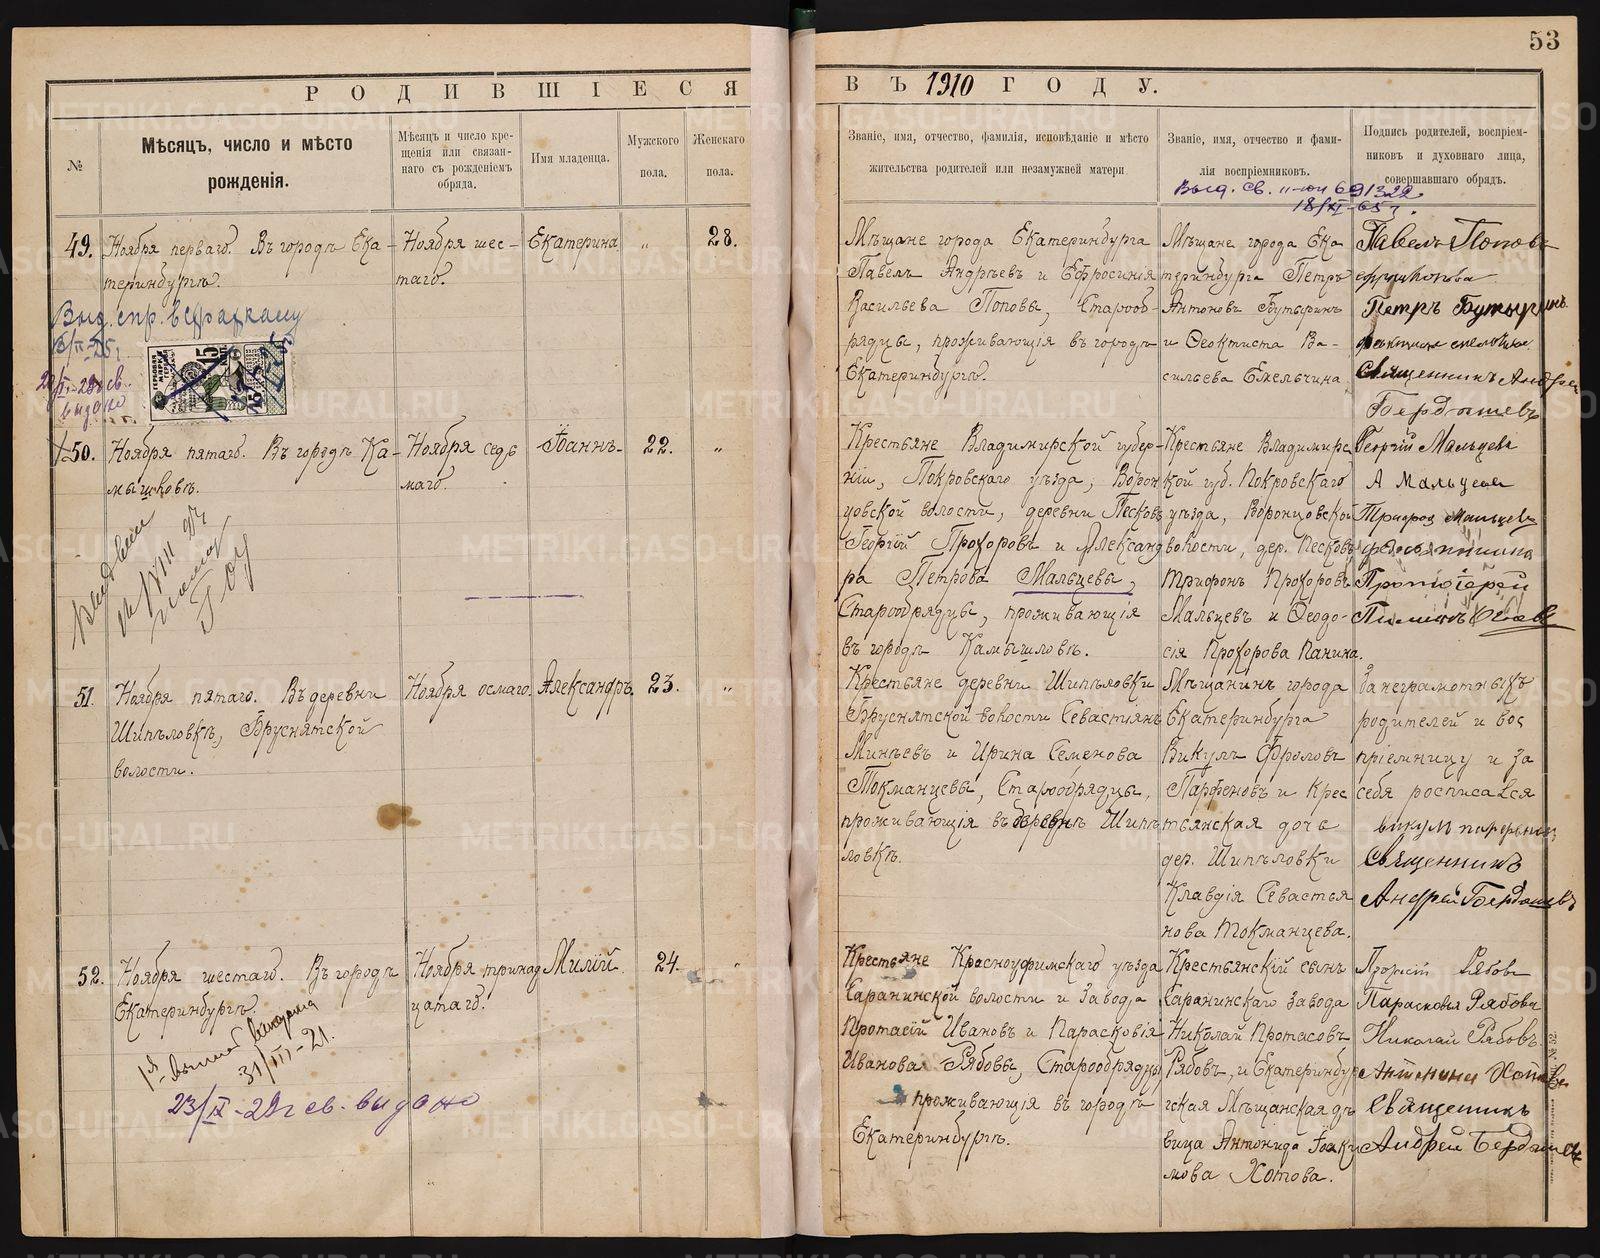 53
РОДИВШІЕСЯ
ВЪ 1910 ГОДУ.
№
Мѣсяцъ, число и мѣсто
рожденія.
Мѣсяцъ и число кре-
щенія или связан-
наго съ рожденіемъ
обряда.
Имя младенца.
Мужского
пола.
Женскаго
пола.
Званіе, имя, отчество, фамилія, исповѣданіе и мѣсто
жительства родителей или незамужней матери
Званіе, имя, отчество и фами-
лія воспріемниковъ.
Подпись родителей, воспріем-
никовъ и духовнаго лица,
совершавшаго обрядъ.
Выд. св. 691322
18/XI-65 г.
49.
Ноября перваго. Въ городѣ Ека-
теринбургѣ.
Ноября шес-
таго.
Екатерина
„
28.
Мѣщане города Екатеринбурга
Павелъ Андрѣевъ и Ефросинія
Васильева Поповы, Старооб-
рядцы, проживающія въ городѣ
Екатеринбургѣ.
Мѣщане города Ека-
теринбурга Петръ
Антоновъ Бутыринъ
и Ѳеоктиста Ва-
сильева Емельчина
Павелъ Поповъ
Петръ Бутыринъ
Священникъ Андрей
Бердышевъ
Выд. спр. в страхкассу
28г св.
выдано
15
50.
Ноября пятаго. Въ городѣ Ка-
мышловѣ.
Ноября седь
маго.
Іоаннъ-
22.
„
Крестьяне Владимирской губер-
ніи, Покровскаго уѣзда, Ворон
цовской волости, деревни Песковъ
Георгій Прохоровъ и Александ
ра Петрова Мальцевы,
Старообрядцы, проживающія
въ городѣ Камышловѣ.
Крестьяне Владимирс
кой губ. Покровскаго
уѣзда, Воронцовской
волости, дер. Песковъ
Трифонъ Прохоровъ
Мальцевъ и Ѳеодо-
сія Прохорова Панина.
Георгій Мальцевъ
А Мальцева
Мальцевъ
Протоіерей
51.
Ноября пятаго. Въ деревни
Шипѣловкѣ, Бруснятской
волости.
Ноября осмаго.
Александръ.
23.
„
Крестьяне деревни Шипѣловки
Бруснятской волости Севастіянъ
Минѣевъ и Ирина Семенова
Токманцевы, Старообрядцы,
проживающія въ деревнѣ Шипѣ
ловкѣ.
Мѣщанинъ города
Екатеринбурга
Викулъ Фроловъ
Парфеновъ и Крес
тьянская дочь
дер. Шипѣловки
Клавдія Севастья
нова Токманцева.
За неграмотныхъ
родителей и вос
пріемницу и за
себя росписался
Священникъ
Андрей Бердышевъ
52.
Ноября шестаго. Въ городѣ
Екатеринбургѣ.
Ноября тринад
цатаго.
Милій.
24.
„
Крестьяне Красноуфимскаго уѣзда
Саранинской волости и завода
Протасій Ивановъ и Парасковія
Иванова Рябовы, Старообрядцы
проживающія въ городѣ
Екатеринбургѣ.
Крестьянскій сынъ
Саранинскаго завода
Николай Протасовъ
Рябовъ, и Екатеринбур
гская Мѣщанская дѣ
вица Антонида Іоаки
мова Хотова.
Рябовъ
Парасковья Рябова
Николай Рябовъ.
Священникъ
Андрей Бердышевъ
31/III-21.
23/IX-29г св. выдано
METRIKI.GASO-URAL.RU